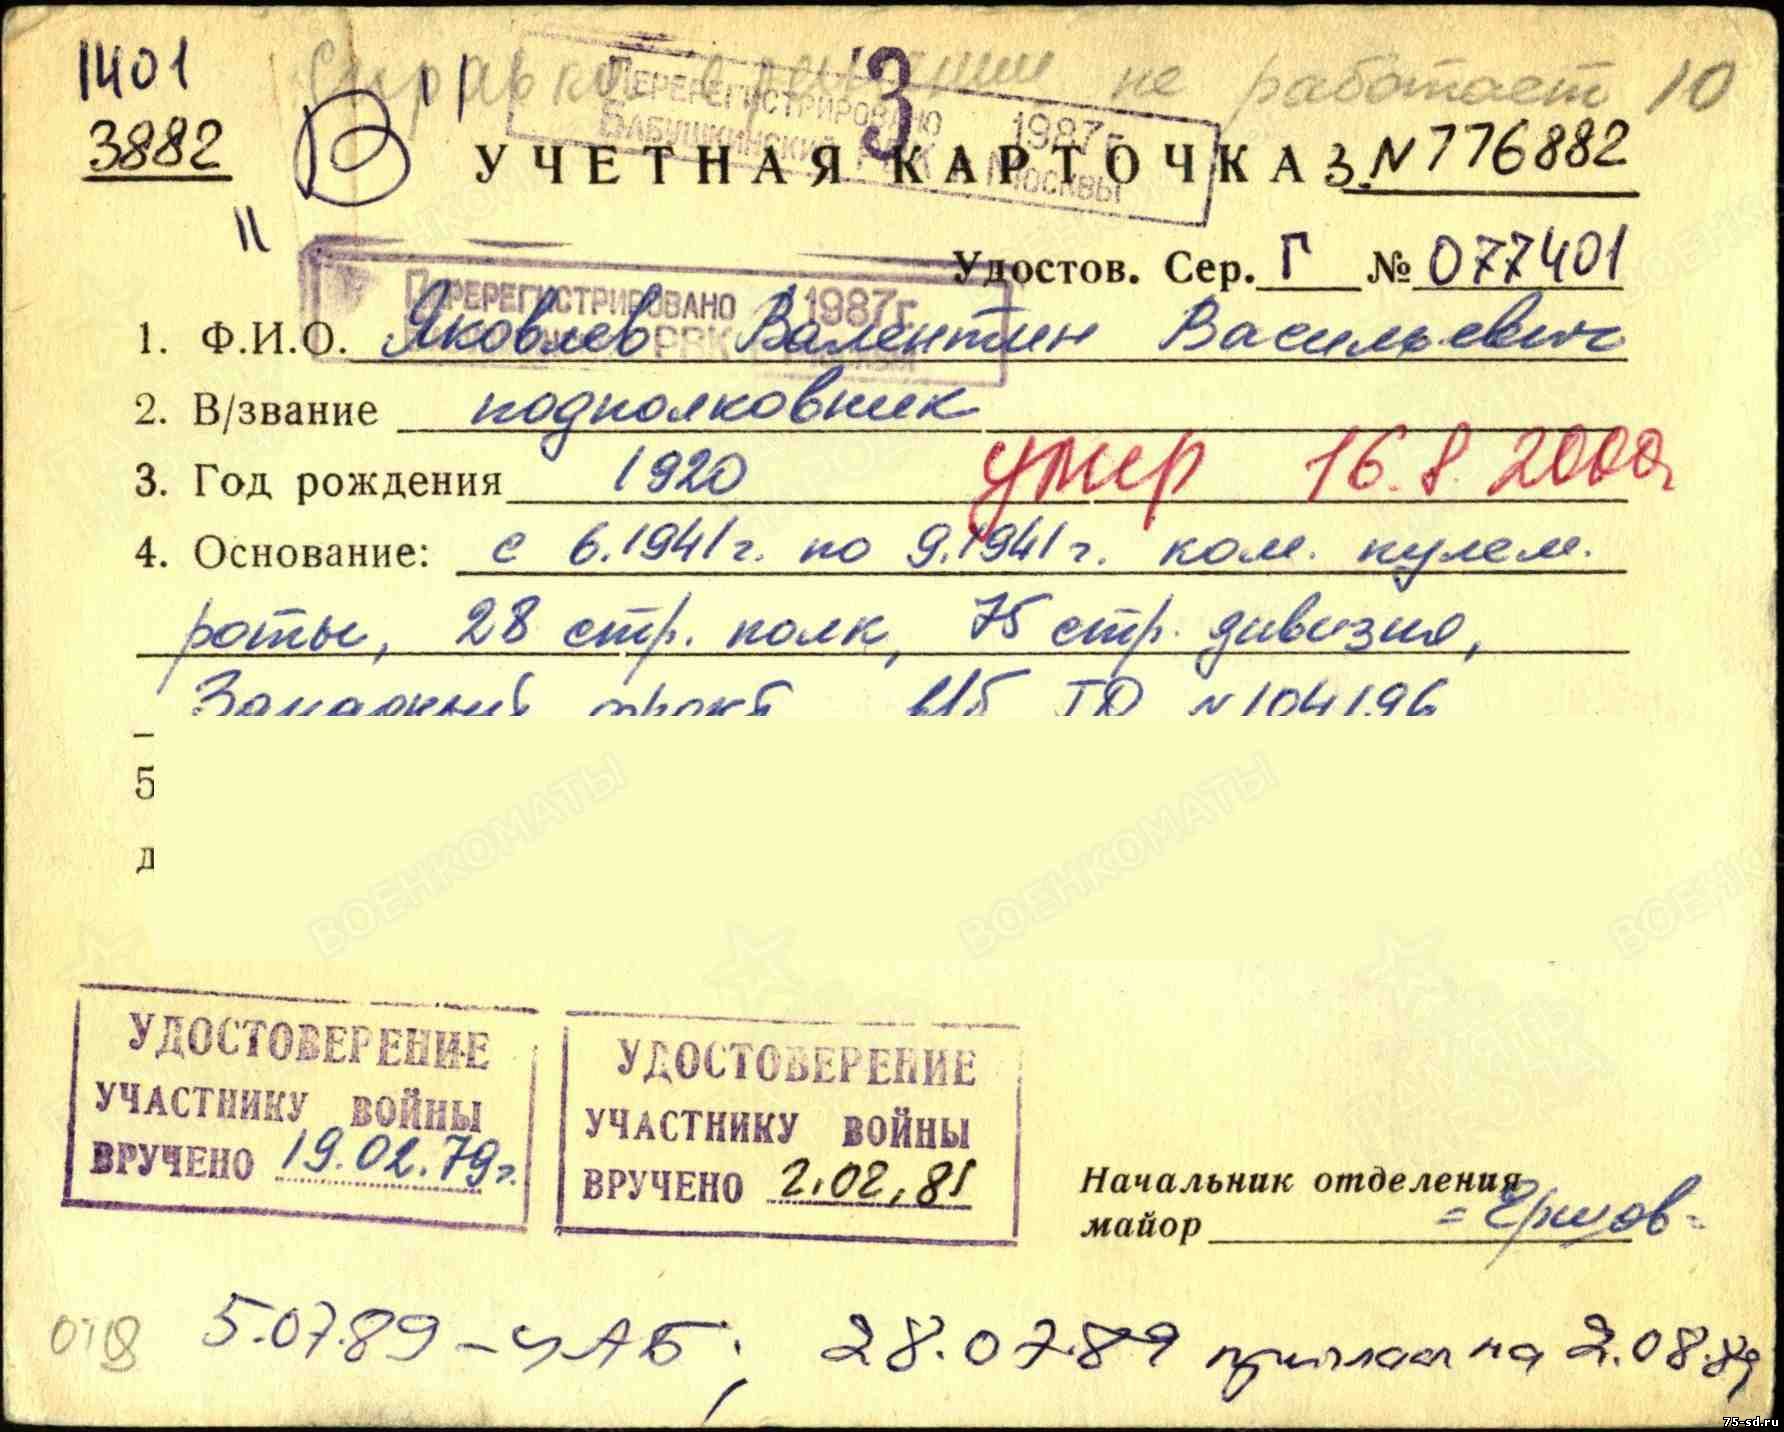 1401 Справка не работает 10
3882 В 3 УЧЕТНАЯ КАРТОЧКА З.№776882
ПЕРЕРЕГИСТРИРОВАНО 1987г.
БАБУШКИНСКИЙ РВК г. МОСКВЫ
11
Удостов. Сер. Г № 077401
ПЕРЕРЕГИСТРИРОВАНО 1987г.
РВК
1. Ф.И.О. Яковлев Валентин Васильевич
2. В/звание подполковник
3. Год рождения 1920 умер 16.8.2000г
4. Основание: с 6.1941г. по 9.1941г. ком. пулем.
роты, 28 стр. полк, 75 стр. дивизия,
Западный фронт ГД №104196
5
д
ВОЕНКОМАТЫ ВОЕНКОМАТЫ
УДОСТОВЕРЕНИЕ
УЧАСТНИКУ ВОЙНЫ
ВРУЧЕНО 19.02.79г.
УДОСТОВЕРЕНИЕ
УЧАСТНИКУ ВОЙНЫ
ВРУЧЕНО 2.02.81
Начальник отделения
майор =Ершов=
5.07.89 – ЧАБ; 28.07.89 приглаш на 2.08.89
75-sd.ru